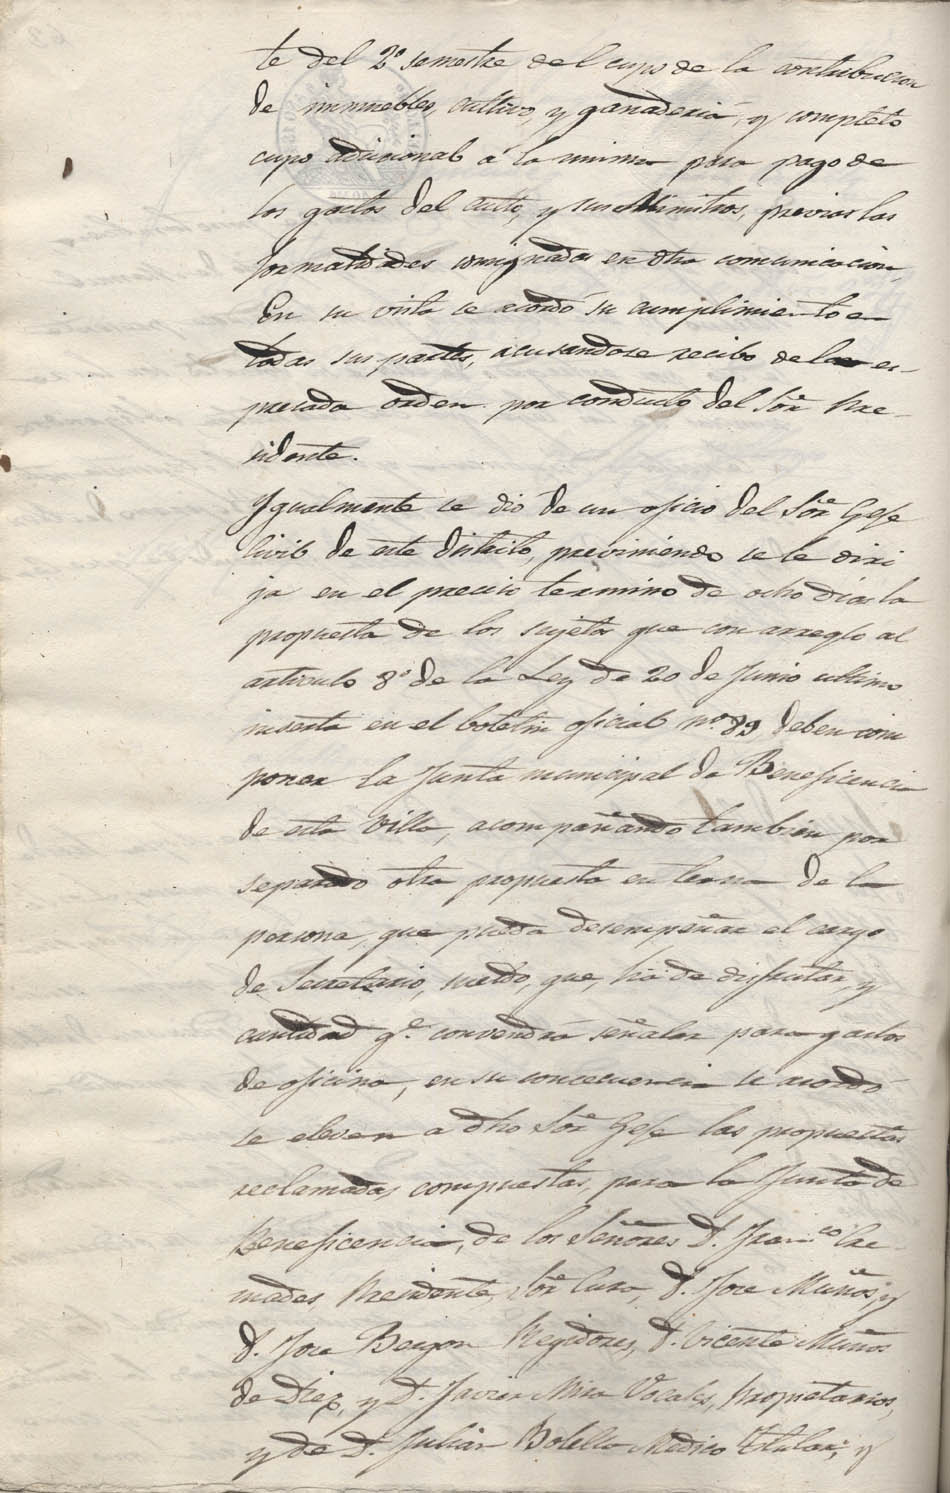 te del 2º semestre del cupo de la contribucion
de inmuebles, cultivo, y ganaderia, y completo
cupo adicional á la misma para pago de
los gastos del culto, y sus Ministros, previas las
formalidades consignadas en otra comunicacion.
En su vista se acordó su cumplimiento en
todas sus partes, acusandose recibo de la es-
presada orden por conducto del Sõr Pre-
sidente.
Ygualmente se dió de un oficio del Sõr Gefe
Civil de este distrito, previniendo se le diri
ja en el preciso termino de ocho dias la
propuesta de los sujetos que con arreglo al
articulo 8º de la Ley de 20 de Junio ultimo
inserta en el boletin oficial nº 89, deben com
poner la Junta municipal de Beneficencia
de esta Villa, acompañando tambien por
separado otra propuesta en terna de la
persona, que pueda desempeñar el cargo
de Secretario, sueldo, que, ha de disfrutar, y
cantidad qe. convendrá señalar para gastos
de oficina, en su concecuencia se acordó
se eleven a dho Sõr Gefe las propuestas
reclamadas, compuestas, para la Junta de
Beneficencia, de los Señores D. Franco Cre-
mades, Presidente, Sõr Cura, D. Jose Muños, y
D. Jose Beryon Regidores, D. Vicente Muños
de Diez, y D. Javier Mira Vocales, Propietarios,
y de D. Julian Botella Medico Titular, y